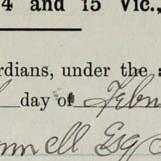 4 and 15 Vic.,
rdians, under the
day of Feb
nnell Esq